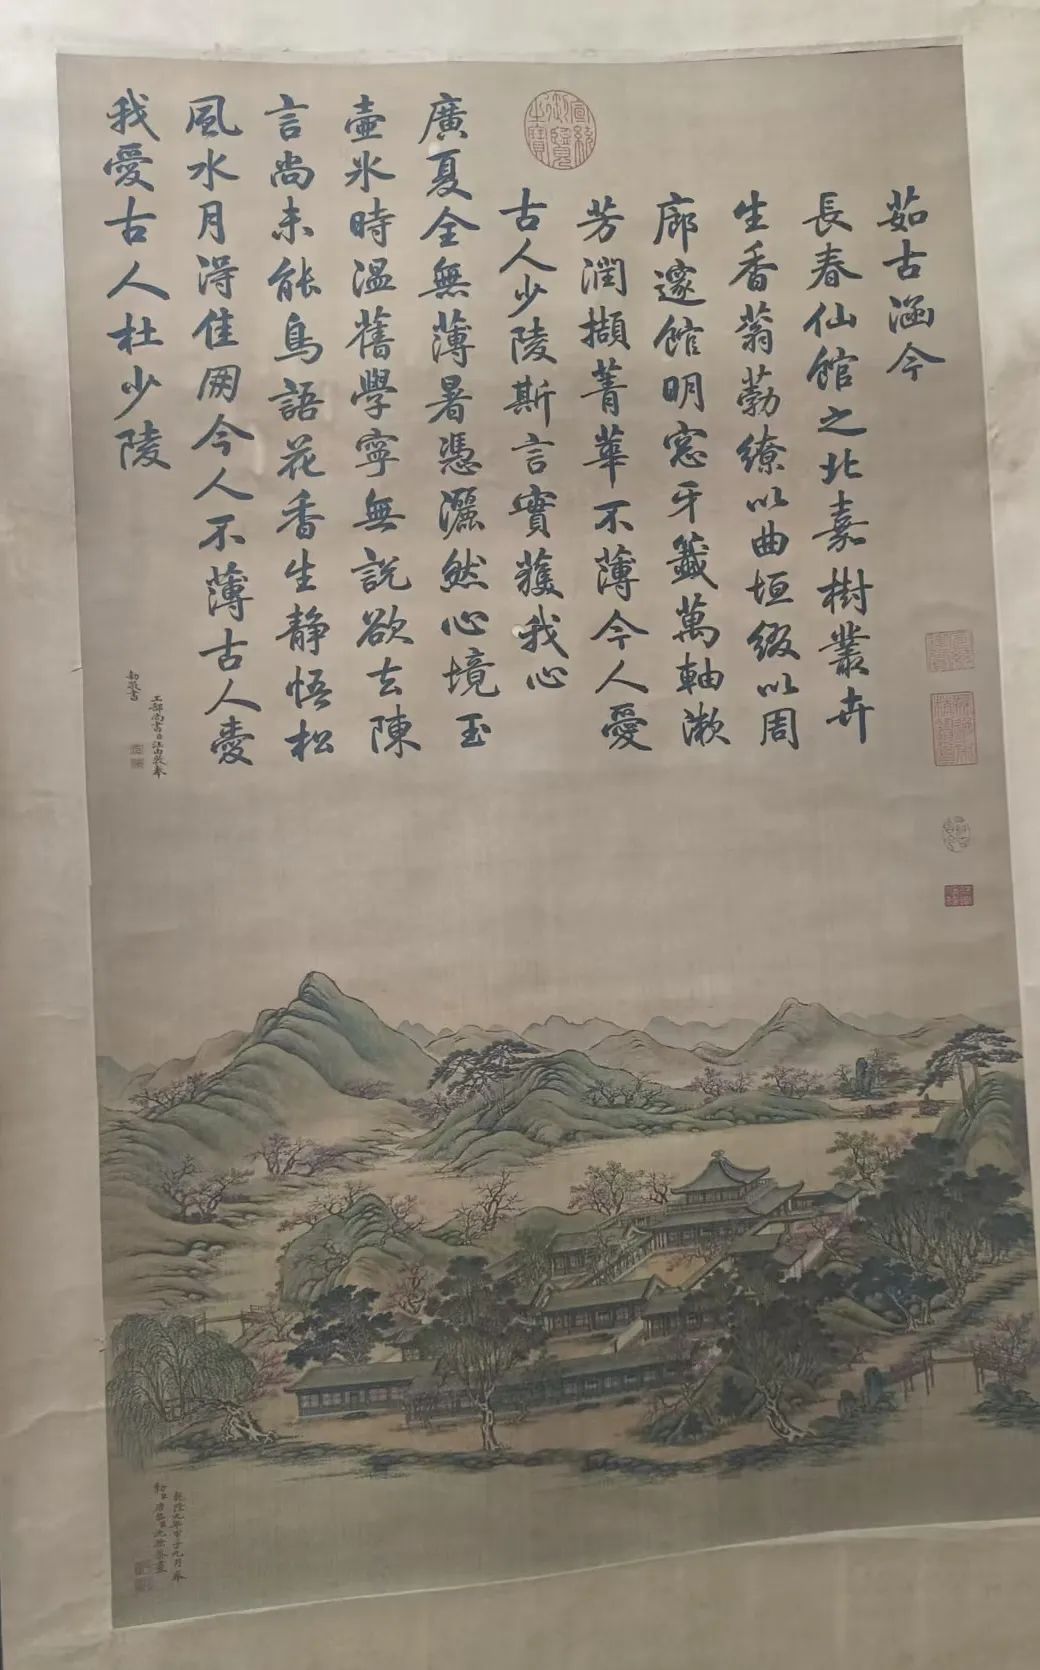 宣統御覽之寶
茹古涵今
長春仙館之北嘉樹叢卉
生香蓊葧繚以曲垣綴以周
廊邃館明窓牙籤萬軸漱
芳潤擷菁華不薄今人愛
古人少陵斯言實獲我心
廣夏全無薄暑憑灑然心境玉
壺氷時温舊學寧無說欲去陳
言尚未能鳥語花香生静悟松
風水月淂佳朋今人不薄古人愛
我愛古人杜少陵
工部尚書臣汪由敦奉
勅敬書
乾隆九年甲子九月奉
勅臣唐岱臣沈源恭畫